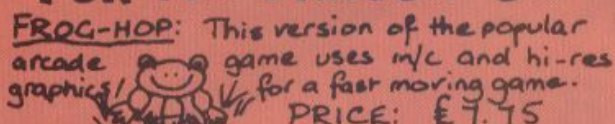 FROG-HOP: This version of the popular
arcade game uses m/c and hi-res
graphics! for a fast moving game.
PRICE: £7.75